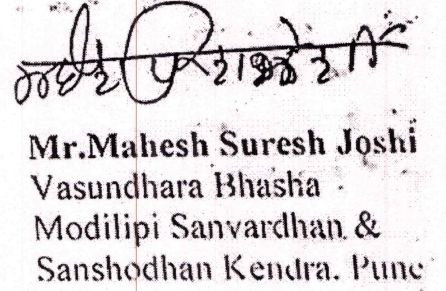 Mr.Mahesh Suresh Joshi
Vasundhara Bhasha
Modilipi Sanvardhan &
Sanshodhan Kendra. Pune